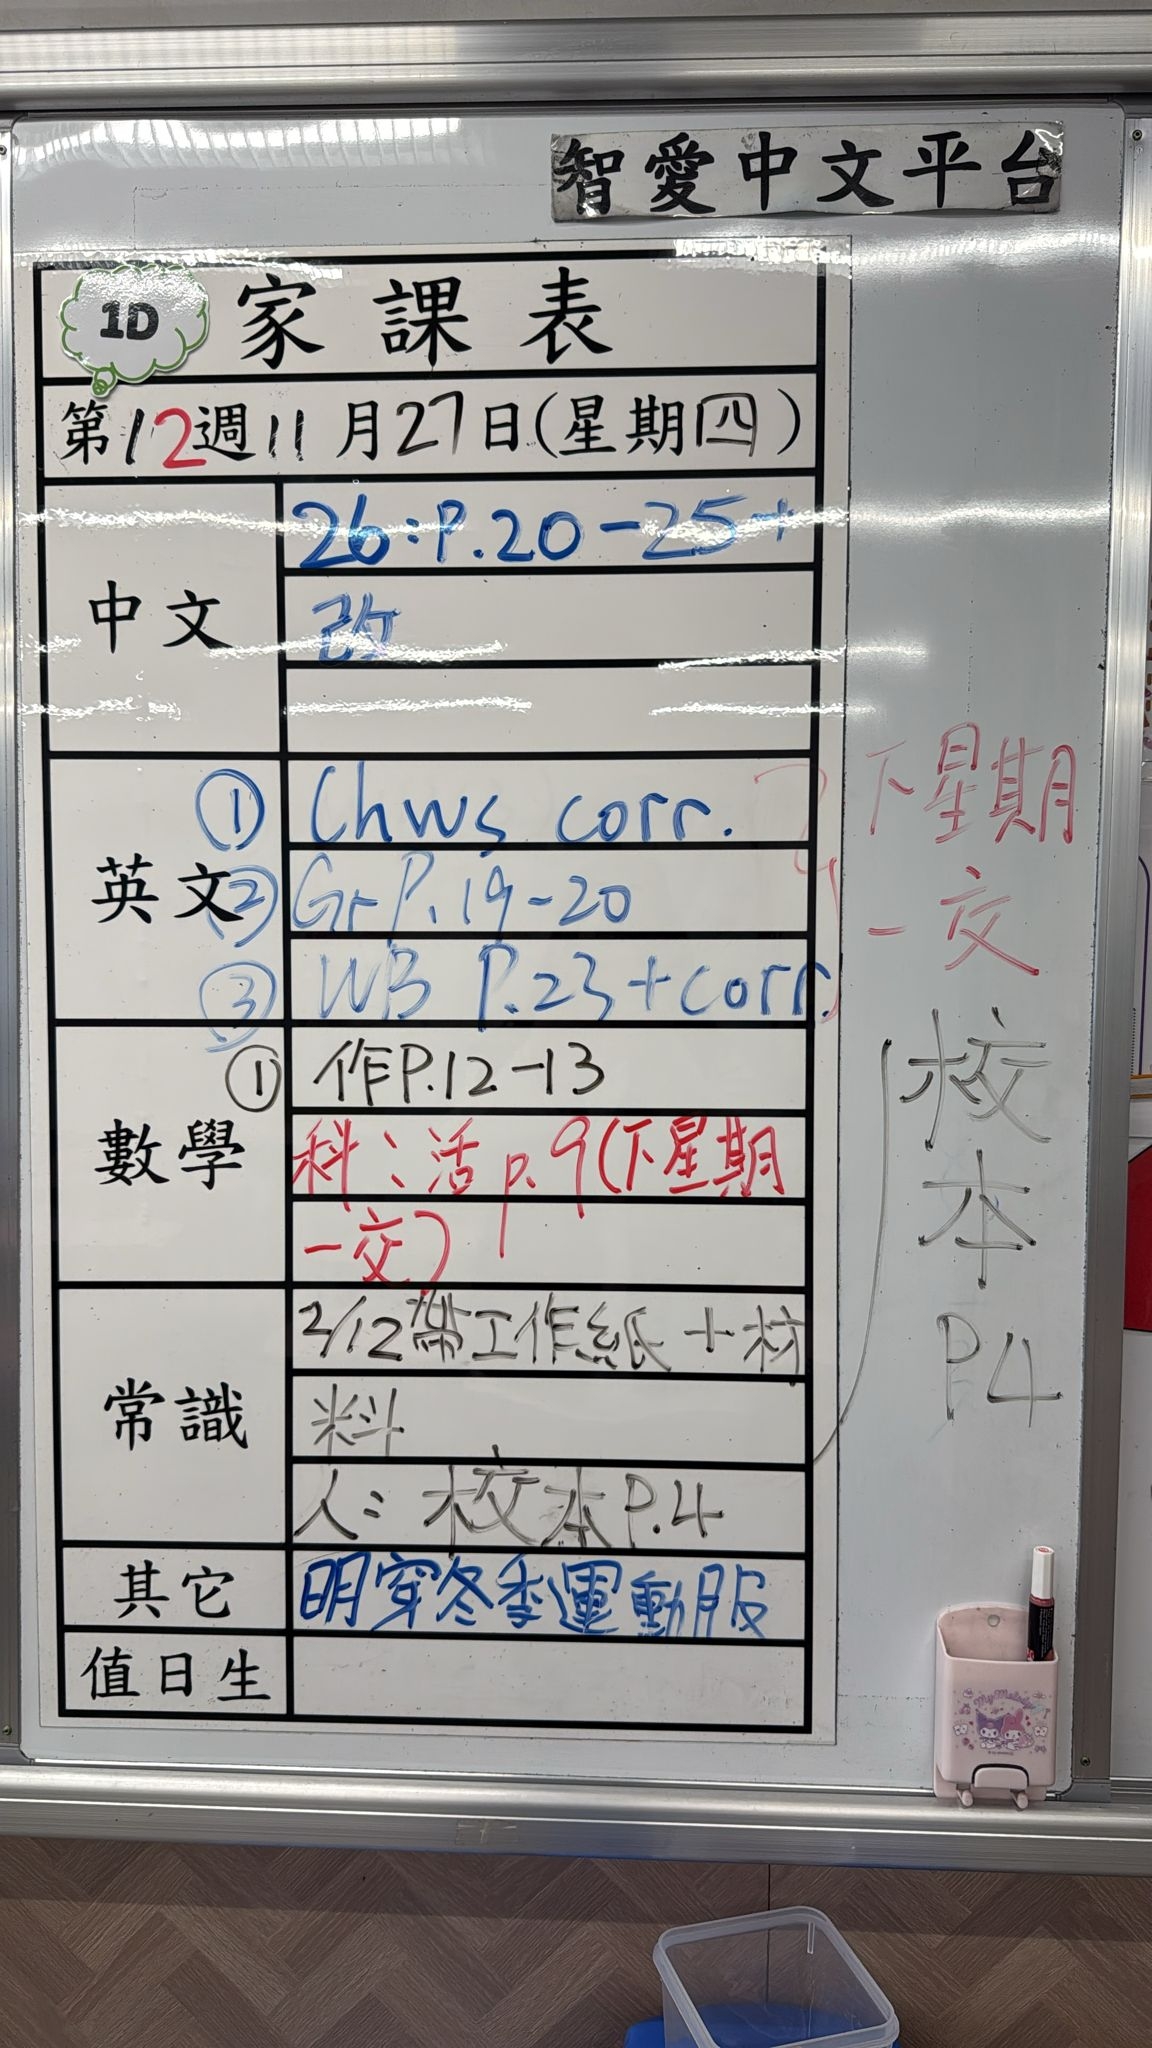 智愛中文平台
1D 家課表
第12週11月27日(星期四)
中文
26:P.20-25+
改
英文
① Chws corr.
② Gr P.19-20
③ WB P.23+corr.
下星期
一交
數學
① 作P.12-13
科：活p.9(下星期
一交)
常識
2/12帶工作紙+材
料
人：校本P.4
校
本
P.4
其它
明穿冬季運動服
值日生
My Melody